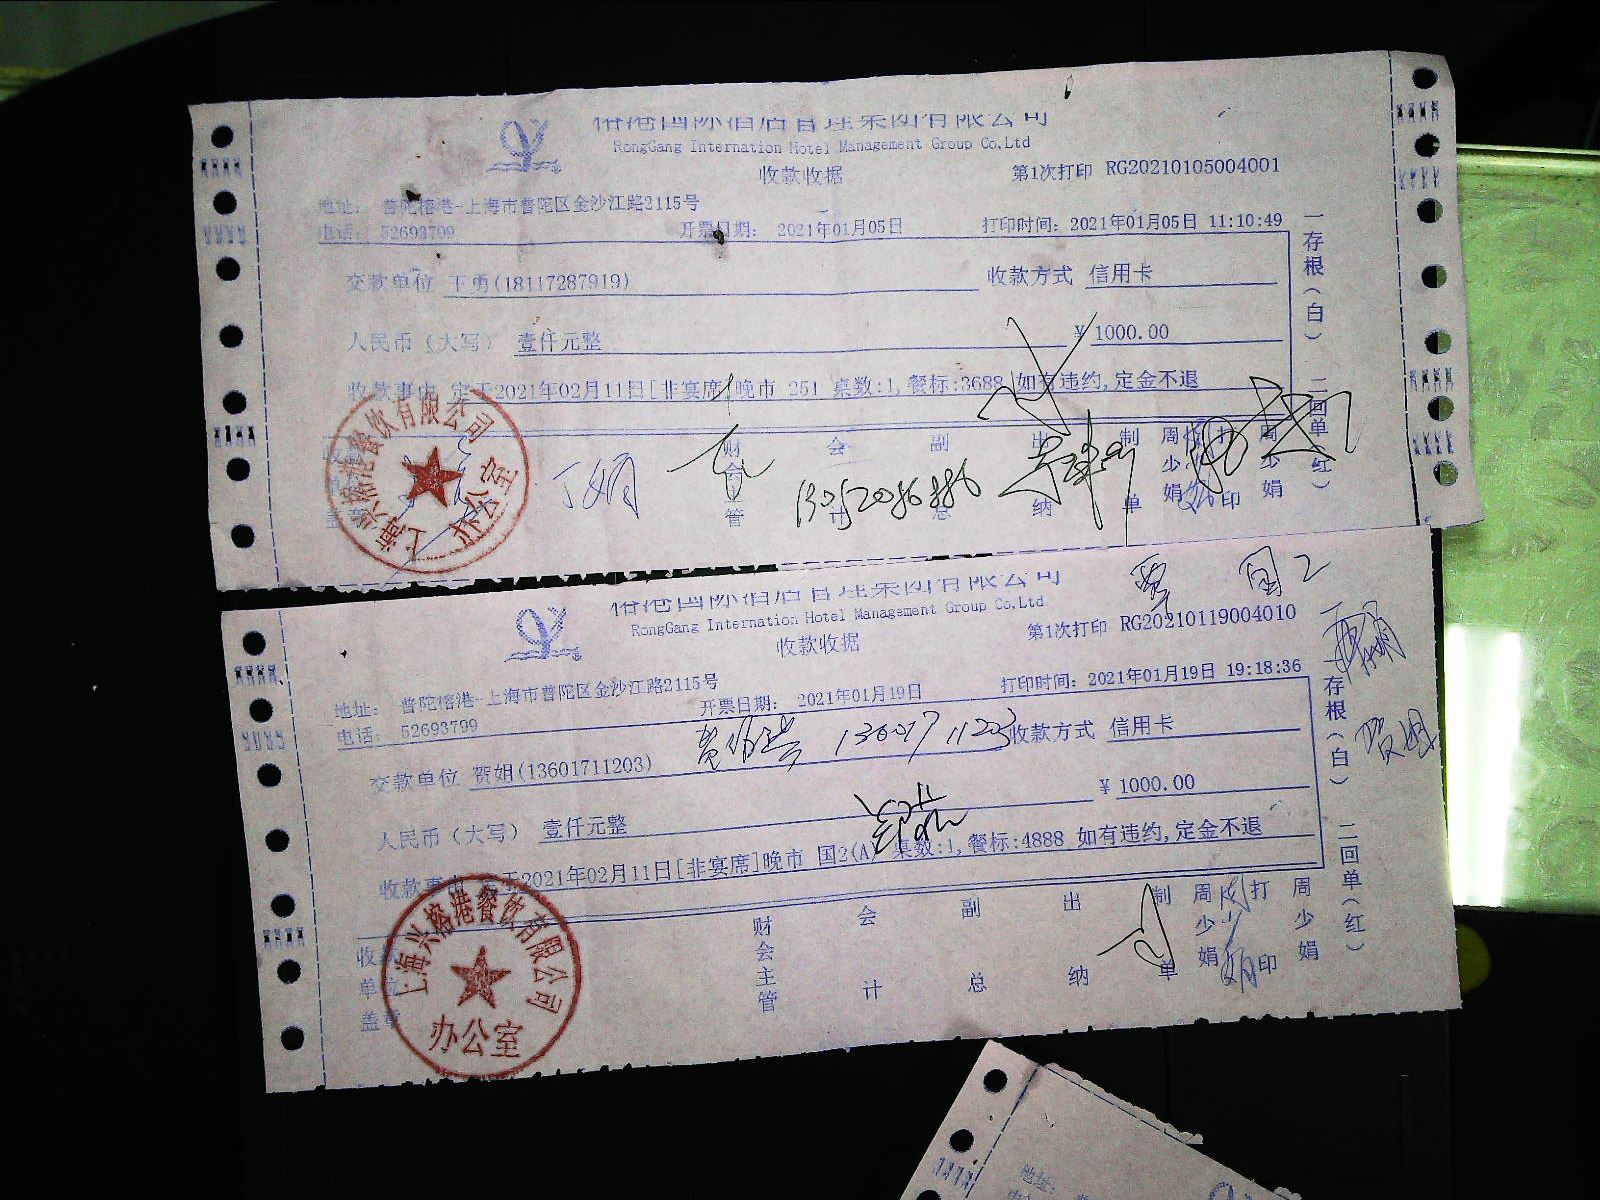 榕港国际酒店管理集团有限公司
RongGang Internation Hotel Management Group Co,Ltd
收款收据
第1次打印 RG20210105004001
地址： 普陀榕港-上海市普陀区金沙江路2115号
电话： 52693799
开票日期： 2021年01月05日
打印时间：2021年01月05日 11:10:49
交款单位 丁勇(18117287919)
收款方式 信用卡
人民币（大写） 壹仟元整
¥ 1000.00
收款事由 定于2021年02月11日[非宴席]晚市 251 桌数:1,餐标:3688 如有违约,定金不退
一存根（白） 二回单（红）
收款单位盖章
财会主管
会计
副总
出纳
制单
周少娟
打印
周少娟
丁娟
13052086886
上海兴榕港餐饮有限公司
办公室
榕港国际酒店管理集团有限公司
RongGang Internation Hotel Management Group Co,Ltd
收款收据
国2
第1次打印 RG20210119004010
地址： 普陀榕港-上海市普陀区金沙江路2115号
电话： 52693799
开票日期： 2021年01月19日
打印时间：2021年01月19日 19:18:36
交款单位 贺姐(13601711203)
13601711203
收款方式 信用卡
人民币（大写） 壹仟元整
¥ 1000.00
收款事由 定于2021年02月11日[非宴席]晚市 国2(A) 桌数:1,餐标:4888 如有违约,定金不退
一存根（白） 二回单（红）
收款单位盖章
财会主管
会计
副总
出纳
制单
周少娟
打印
周少娟
上海兴榕港餐饮有限公司
办公室
地址：